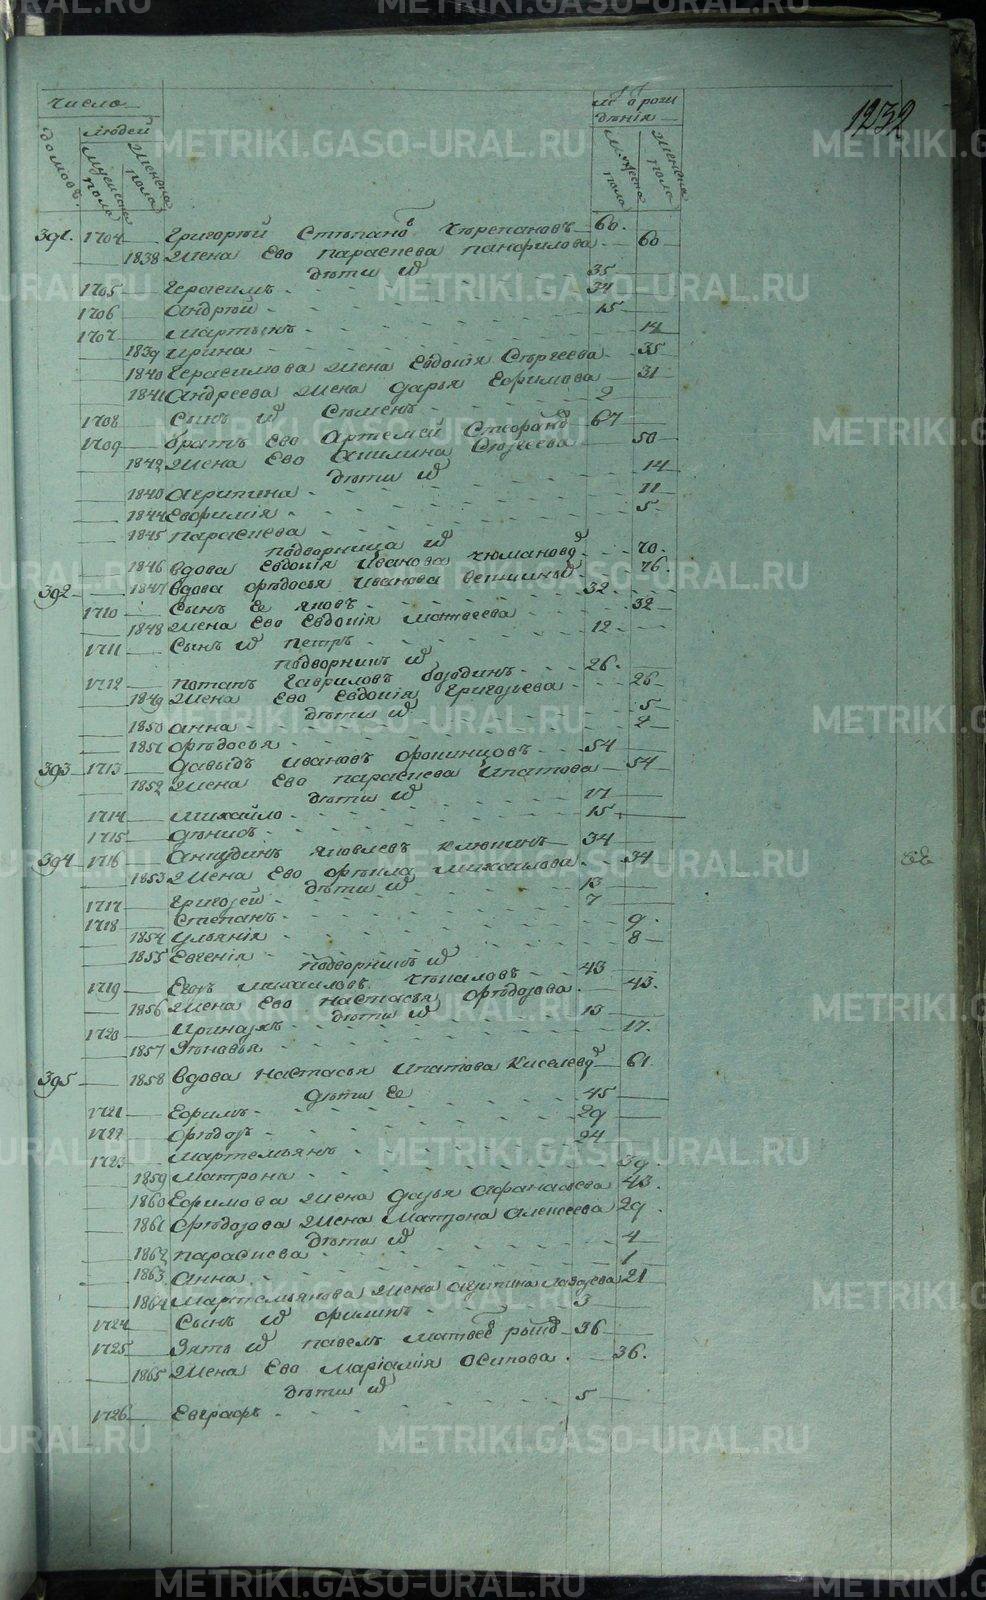 число
людей
домовъ
мужеска пола
женска пола
от рож
дѣнія
мужеска пола
женска пола
1232
391. 1704 Григорѣй Стѣпановъ Черепановъ 60.
1838 Жена Его Параскева Панфилова 60
дѣти их
1705 Герасимъ 35
1706 Андрѣй 34
1707 Мартынъ 15
1839 Ирина 14
1840 Герасимова Жена Евдокія Сѣргеева 35
1841 Андреева Жена Дарья Ефимова 31
1708 Сынъ их Сѣменъ 2
1709 братъ Его Артемей 67
1842 Жена Его 50
дѣти их
1843 Агрипина 14
1844 Евфимія 11
1845 Параскева 5
подворница их
1846 Вдова Евдокія Иванова 70.
392 1847 Вдова Фѣдосья Иванова 76
1710 Сынъ Ее Яковъ 32
1848 Жена Его Евдокія Матвеева 32
1711 Сынъ их Петръ 12
подворникъ их
1712 Потапъ Гавриловъ 26.
1849 Жена Его Евдокія Григорьева 26
дѣти их
1850 Анна 5
1851 Фѣдосья 2
393 1713 Давыдъ Ивановъ 54
1852 Жена Его Параскева Ипатова 54
дѣти их
1714 Михайло 17
1715 Дѣнисъ 15
394 1716 Анкудинъ Яковлевъ Клюкинъ 34
1853 Жена Его Фѣкла Михаилова 34
дѣти их
1717 Григорей 13
1718 Степанъ 7
1854 Ульянія 9
1855 Евгенія 8
подворникъ их
1719 Михаиловъ 43
1856 Жена Его Настасья Фѣдорова 43.
дѣти их
1720 13
1857 Зѣновья 17.
395 1858 Вдова Настасья Ипатова 61
Дѣти Ее
1721 Ефимъ 45
1722 Фѣдоръ 29
1723 Мартемьянъ 24
1859 Матрона 39
1860 Ефимова Жена Дарья Афанасьева 43.
1861 Фѣдорова Жена Матрона Алексеева 29
дѣти их
1862 Параскева 4
1863 Анна 1
1864 Мартемьянова Жена Лазарева 21
1724 Сынъ их Филипъ 3
1725 Зять их Павелъ 36
1865 Жена Его Маріамія Осипова 36.
дѣти их
1726 Евграфъ 5
METRIKI.GASO-URAL.RU